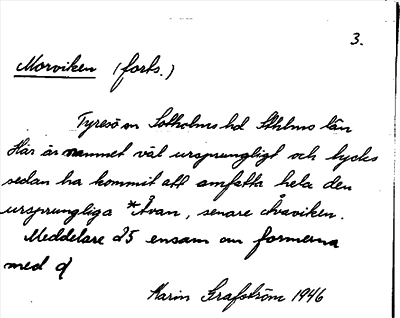 3.
Morviken (forts.)
Tyresö sn Sotholms hd Sthlms län
Här är namnet väl ursprungligt och tycks
sedan ha kommit att omfatta hela den
ursprungliga *Åvan, senare Åvaviken.
Meddelare 25 ensam om formerna
med d
Karin Grafström 1946